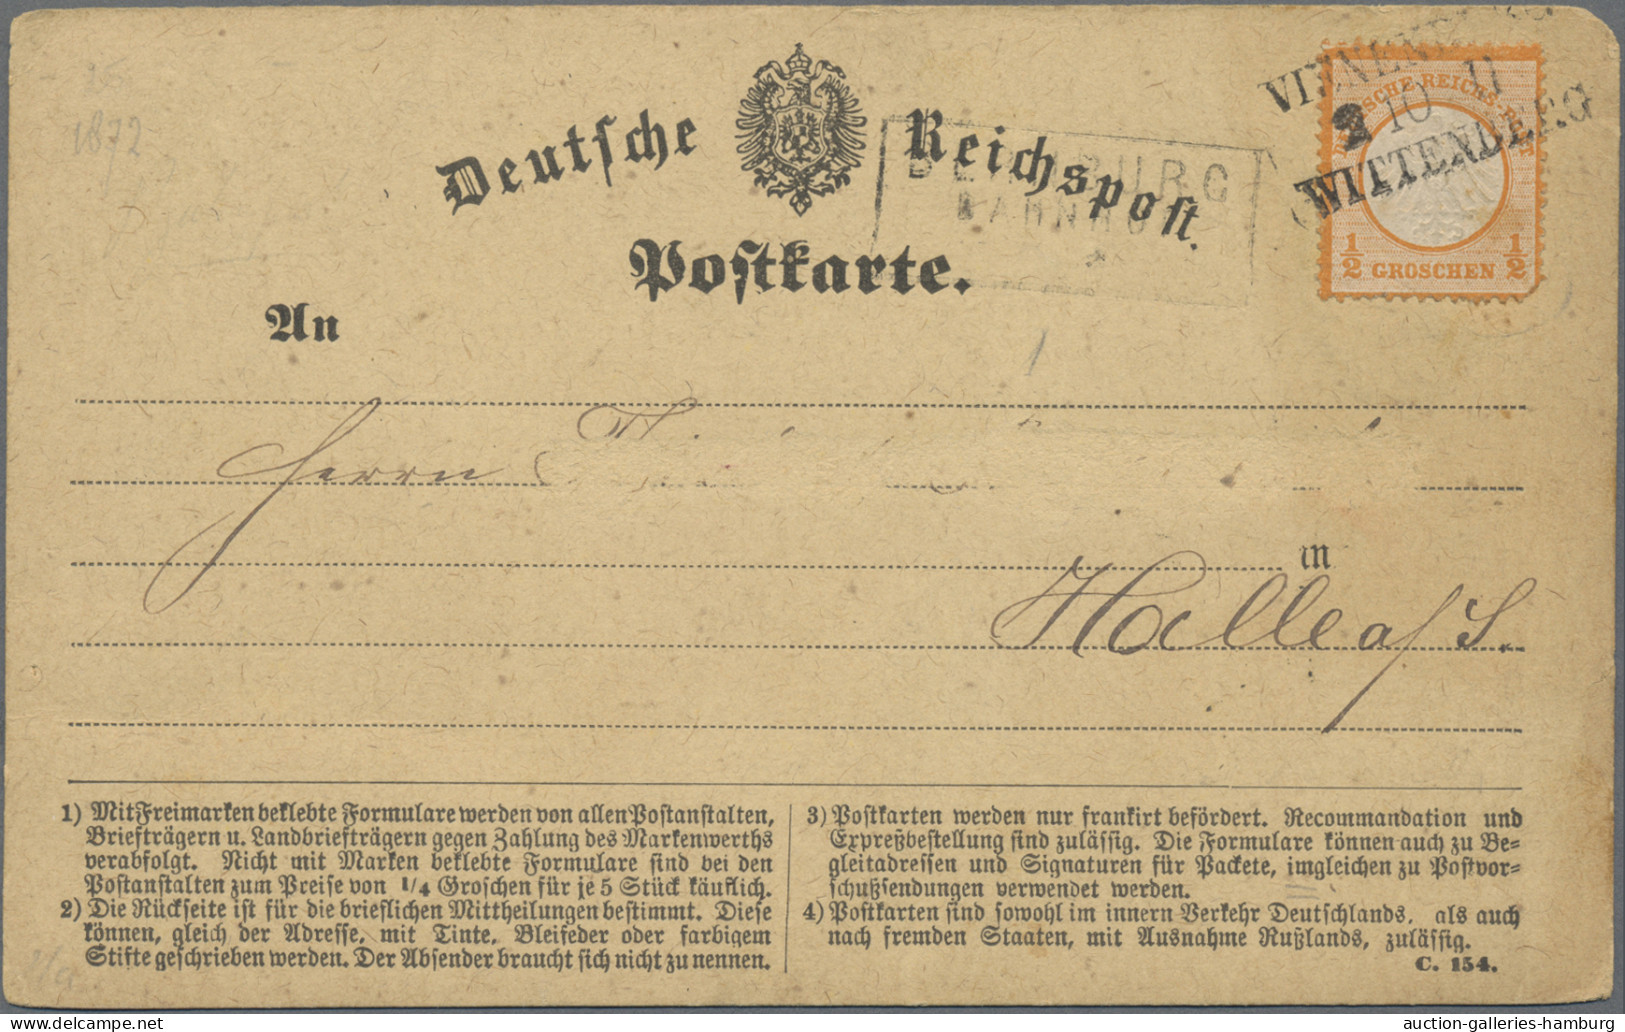 1872
Deutsche Reichspost.
Postkarte.
BAHNHOF
2 10 11
WITTENBERG
DEUTSCHE REICHS-POST
1/2 GROSCHEN 1/2
An
Herrn
in
Halle a/S.
1) Mit Freimarken beklebte Formulare werden von allen Postanstalten,
Briefträgern u. Landbriefträgern gegen Zahlung des Markenwerths
verabfolgt. Nicht mit Marken beklebte Formulare sind bei den
Postanstalten zum Preise von 1/4 Groschen für je 5 Stück käuflich.
2) Die Rückseite ist für die brieflichen Mittheilungen bestimmt. Diese
können, gleich der Adresse, mit Tinte, Bleifeder oder farbigem
Stifte geschrieben werden. Der Absender braucht sich nicht zu nennen.
3) Postkarten werden nur frankirt befördert. Recommandation und
Expreßbestellung sind zulässig. Die Formulare können auch zu Be-
gleitadressen und Signaturen für Packete, imgleichen zu Postvor-
schußsendungen verwendet werden.
4) Postkarten sind sowohl im innern Verkehr Deutschlands, als auch
nach fremden Staaten, mit Ausnahme Rußlands, zulässig.
C. 154.
auction-galleries-hamburg